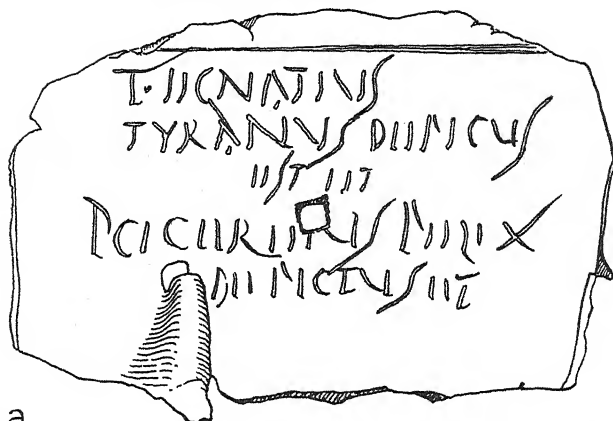 T·IIGNATIVS
TYRANVS DIIFICVS
IIST IIT
P CICIIRIIIVS FIILIX
DIIFICTVS IIT
a